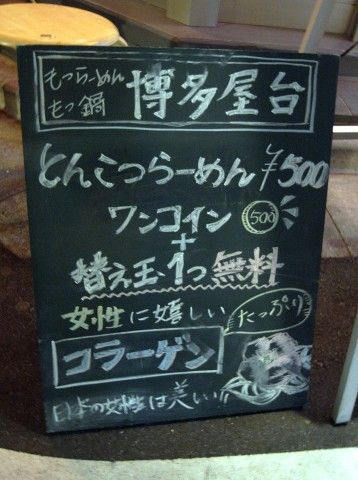 もつらーめん
もつ鍋
博多屋台
とんこつらーめん ¥500
ワンコイン 500
+
替え玉1つ無料
女性に嬉しい たっぷり
コラーゲン
日本の女性は美しい!!